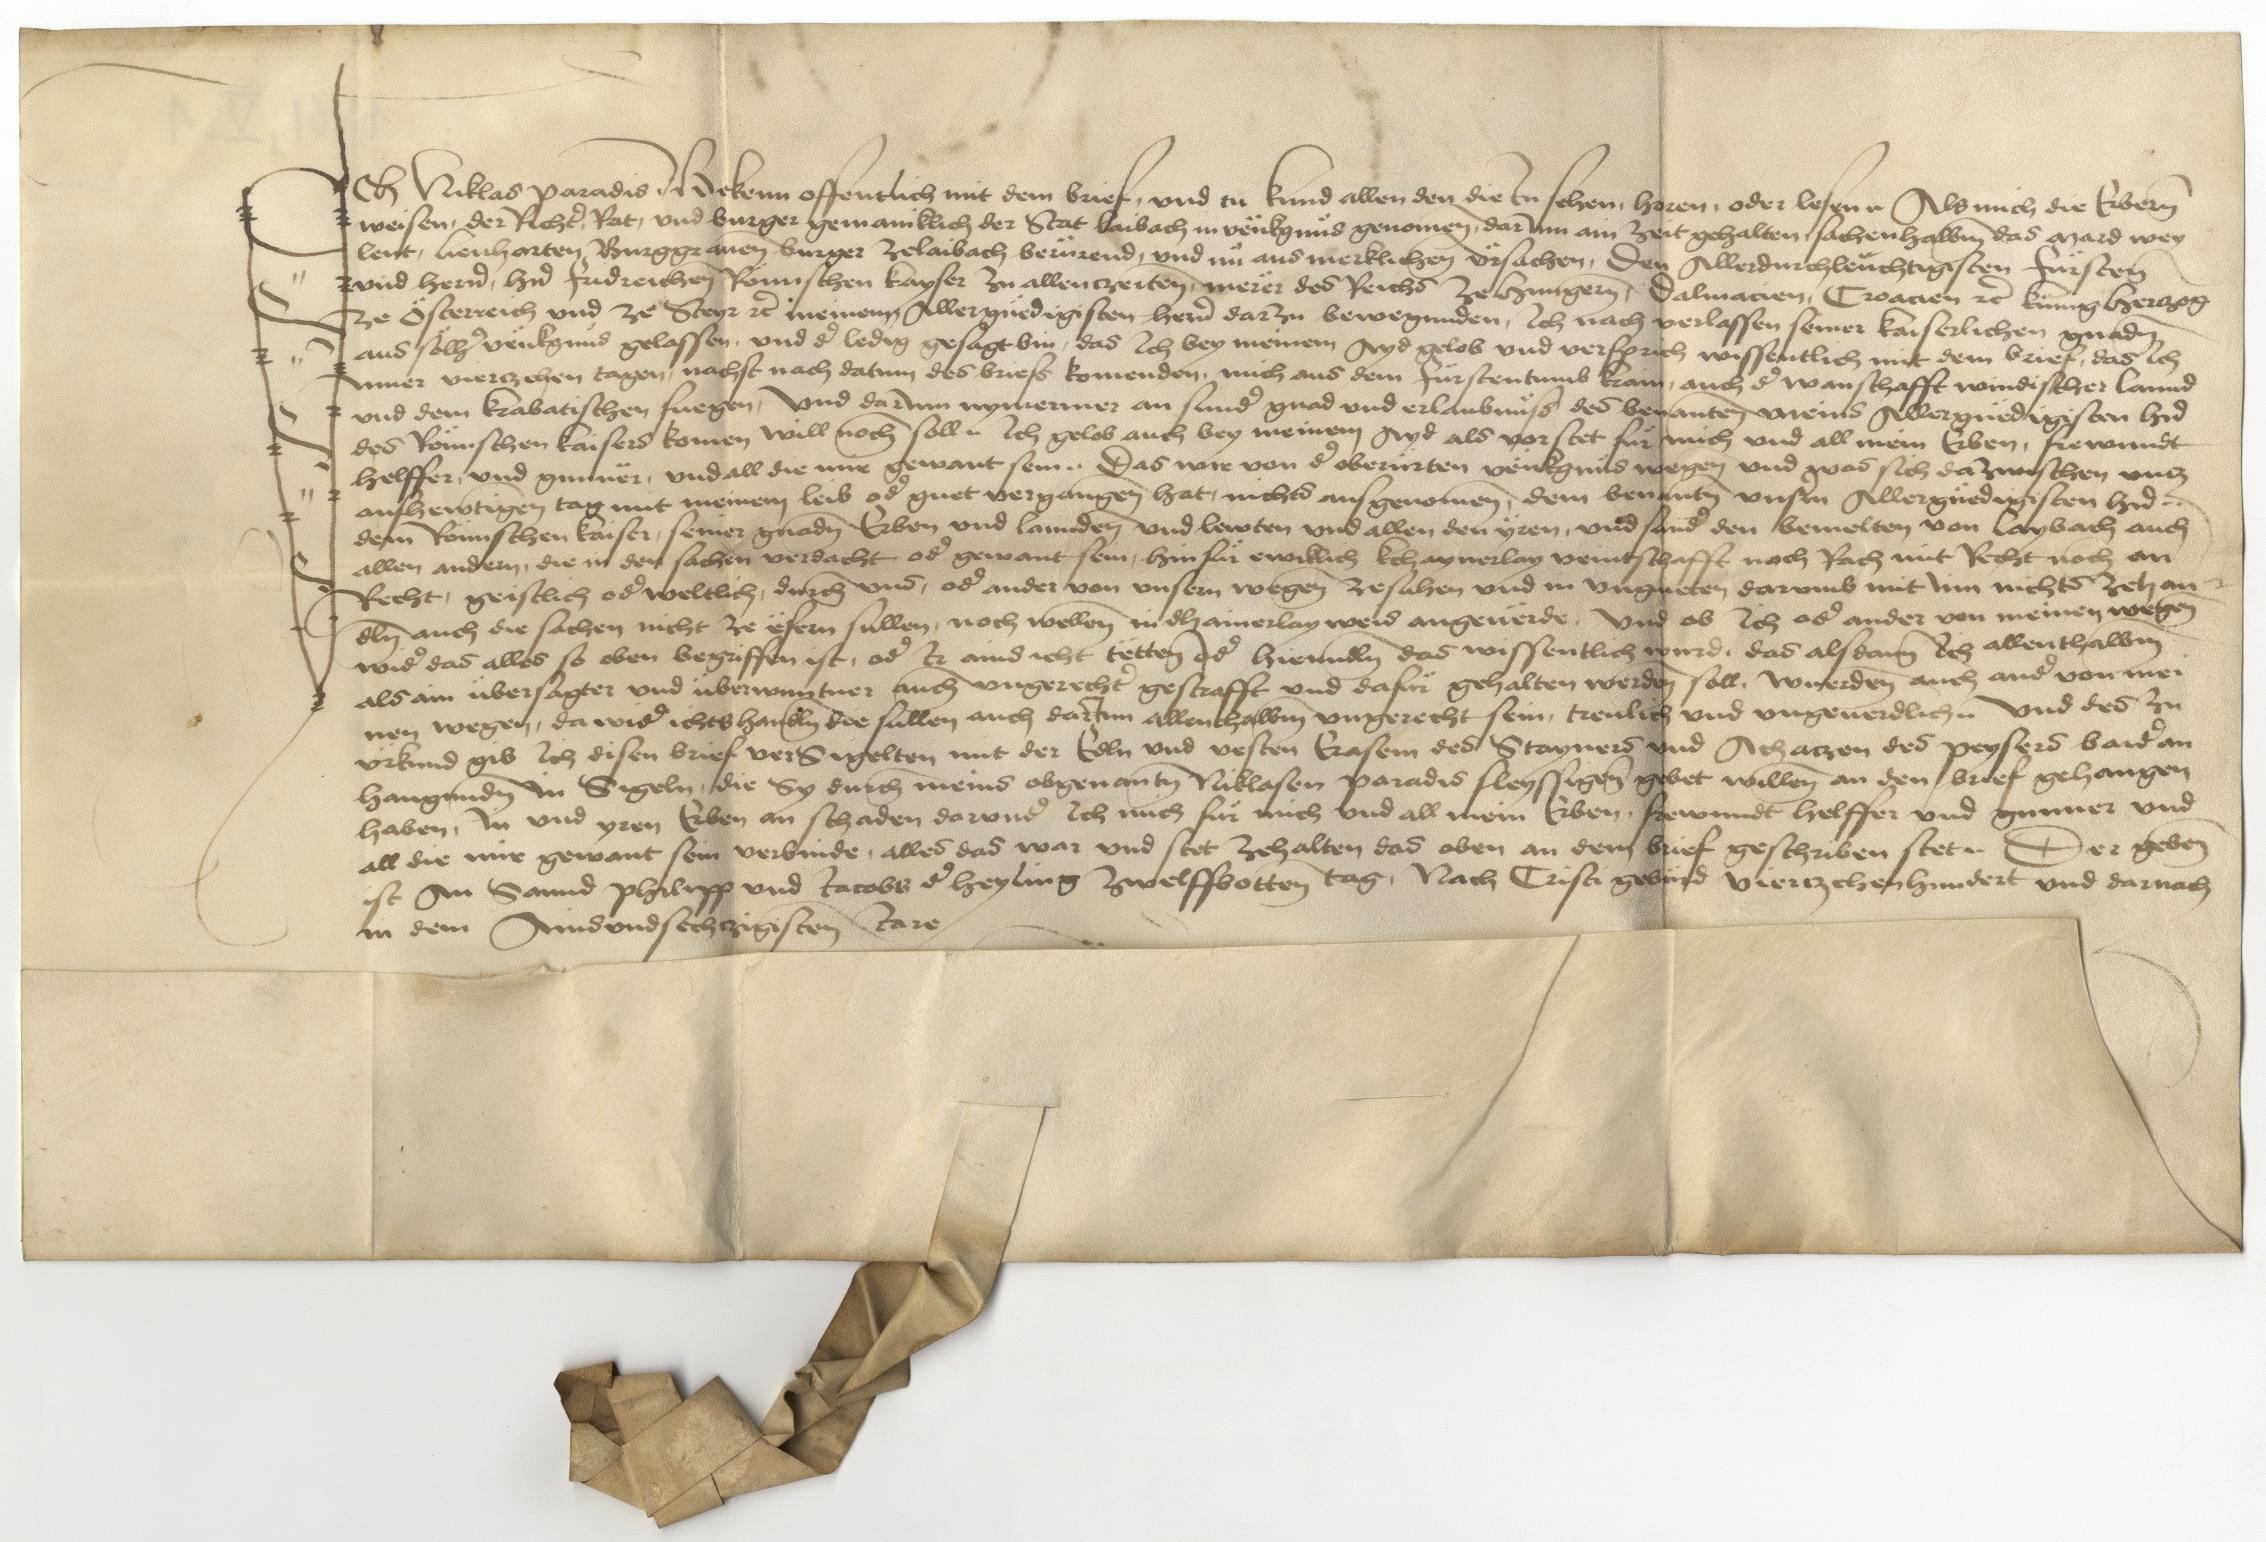 Ich Niklas Paradis Bekenn offentlich mit dem brief, und tu kund allen den die In sehen, horen, oder lesen Als mich die Erbern
weisen, der Richter, Rat, und burger gemainklich der Stat laibach in vënkgnüs genomen, darInn ain Zeit gehalten, sachenhalbm das
lewt, lienharten Burggrauen burger zelaibach berürend, und nu aus merklichen ürsachen, Den Allerdurchleuchtigisten fürsten
und hern, hrn fridreichen Römischen kayser zu allenczeiten, merer des Reichs ze Hungern, Dalmacien, Croacien rc kunig herczog
ze Österreich und ze Steyr rc meinem, Allergnedigisten hern darzu bewegunden, Ich nach verlassen seiner kaiserlichen gnadn
aus sölher vënkgnüs gelassen, und der ledig gesagt bin, das Ich bey meinem Ayd gelob und versprich wissentlich mit dem brief, das Ich
Inner vierczehen tagen, nachst nach datum des briefs komenden, mich aus dem fürstentumb krain, auch der wanschafft windischer lannd
und dem krabatischen fuegen, Und darInn nymermer an sunder gnad und erlaubnüss des benanten meins Allergnedigisten hrn
des Römischen kaisers komen will noch soll Ich gelob auch bey meinem Ayd als vor stet für mich und all mein Erben, frewnndt
helffer, und gunner, und all die mir gewant sein Das wir von der oberürten vënkgnüs wegen und was sich dazwischen uncz
auf hewtigen tag mit meinem leib oder guet vergangen hat, nichts ausgenomen, dem benantn unsrm Allergnedigisten hrn
dem Römischen kaiser, seiner gnadn Erben und lannden und lewten und allen den yren, und sunder den bemelten von laybach auch
allen andern, die in den sachen verdacht oder gewant sein, hinfür ewiklich khaynerlay veintschafft noch Rach mit Recht noch an
Recht, geistlich oder weltlich, durch uns, oder ander von unsern wegen zesuhen und in ungueten darumb mit Inn nichts zehan
dln auch die sachen nicht ze efern sullen, noch wellen in dhainerlay weis angeuërde. Und ob Ich oder ander von meinen wegen
wider das alles so oben begriffen ist, oder Ir ains icht tëtten oder hienndln das wissentlich wurd, das alsdann Ich allenthalbm
als ain übersagter und überwuntner auch ungerechter gestrafft und dafür gehalten werden soll. Wuerden auch ander von mei
nen wegen, da wider ichts handln die sullen auch darInn allenthalbm ungerecht sein, treulich und ungeuerdlich Und des zu
ürkund gib Ich disen brief verSigelten mit der Edln und vesten Erasem des Stayners und Achaczen des peysers baider an
hangundn In Sigeln, die Sy durch meins obgenantn Niklasen Paradis fleyssigen gebet willen an den brief gehangen
haben, In und yren Erben an schaden darunder Ich mich für mich und all mein Erben, frewnndt helffer und gunner und
all die mir gewant sein verbinde, alles das war und stet zehalten das oben an dem brief geschriben stet Der geben
ist An Sannd Philipp und Jacobs der heyling zwelffbotten tag, Nach Cristi gebürd vierczehenhundert und darnach
in dem Ainsundsechczigisten Jare